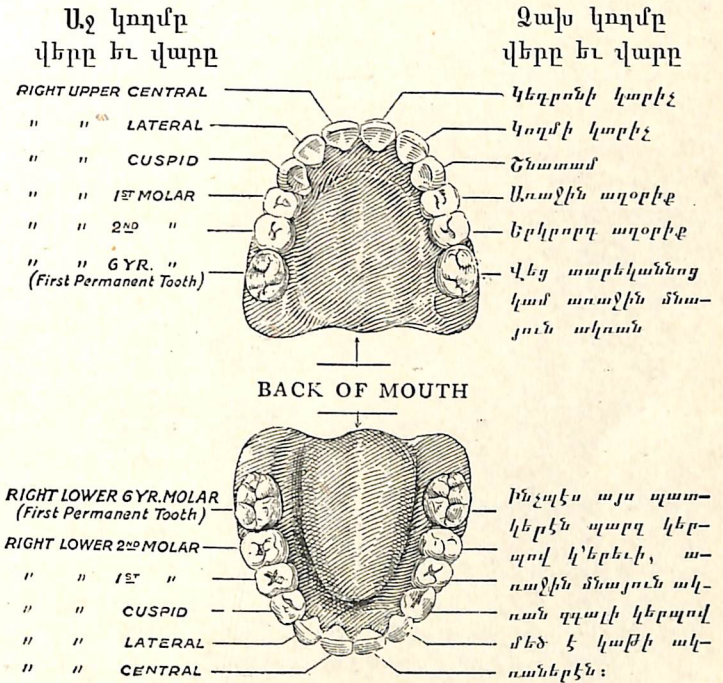 Աջ կողմը
վերը եւ վարը
Ձախ կողմը
վերը եւ վարը
RIGHT UPPER CENTRAL
" " LATERAL
" " CUSPID
" " 1ST MOLAR
" " 2ND "
" " 6 YR. "
(First Permanent Tooth)
Կեդրոնի կտրիչ
Կողմի կտրիչ
Շնատամ
Առաջին աղօրիք
Երկրորդ աղօրիք
Վեց տարեկաննոց
կամ առաջին մնա—
յուն ակռան
BACK OF MOUTH
RIGHT LOWER 6 YR. MOLAR
(First Permanent Tooth)
RIGHT LOWER 2ND MOLAR
" " 1ST "
" " CUSPID
" " LATERAL
" " CENTRAL
Ինչպէս այս պատ—
կերէն պարզ կեր—
պով կ'երեւի, ա—
ռաջին մնայուն ակ—
ռան զգալի կերպով
մեծ է կաթի ակ—
ռաներէն։